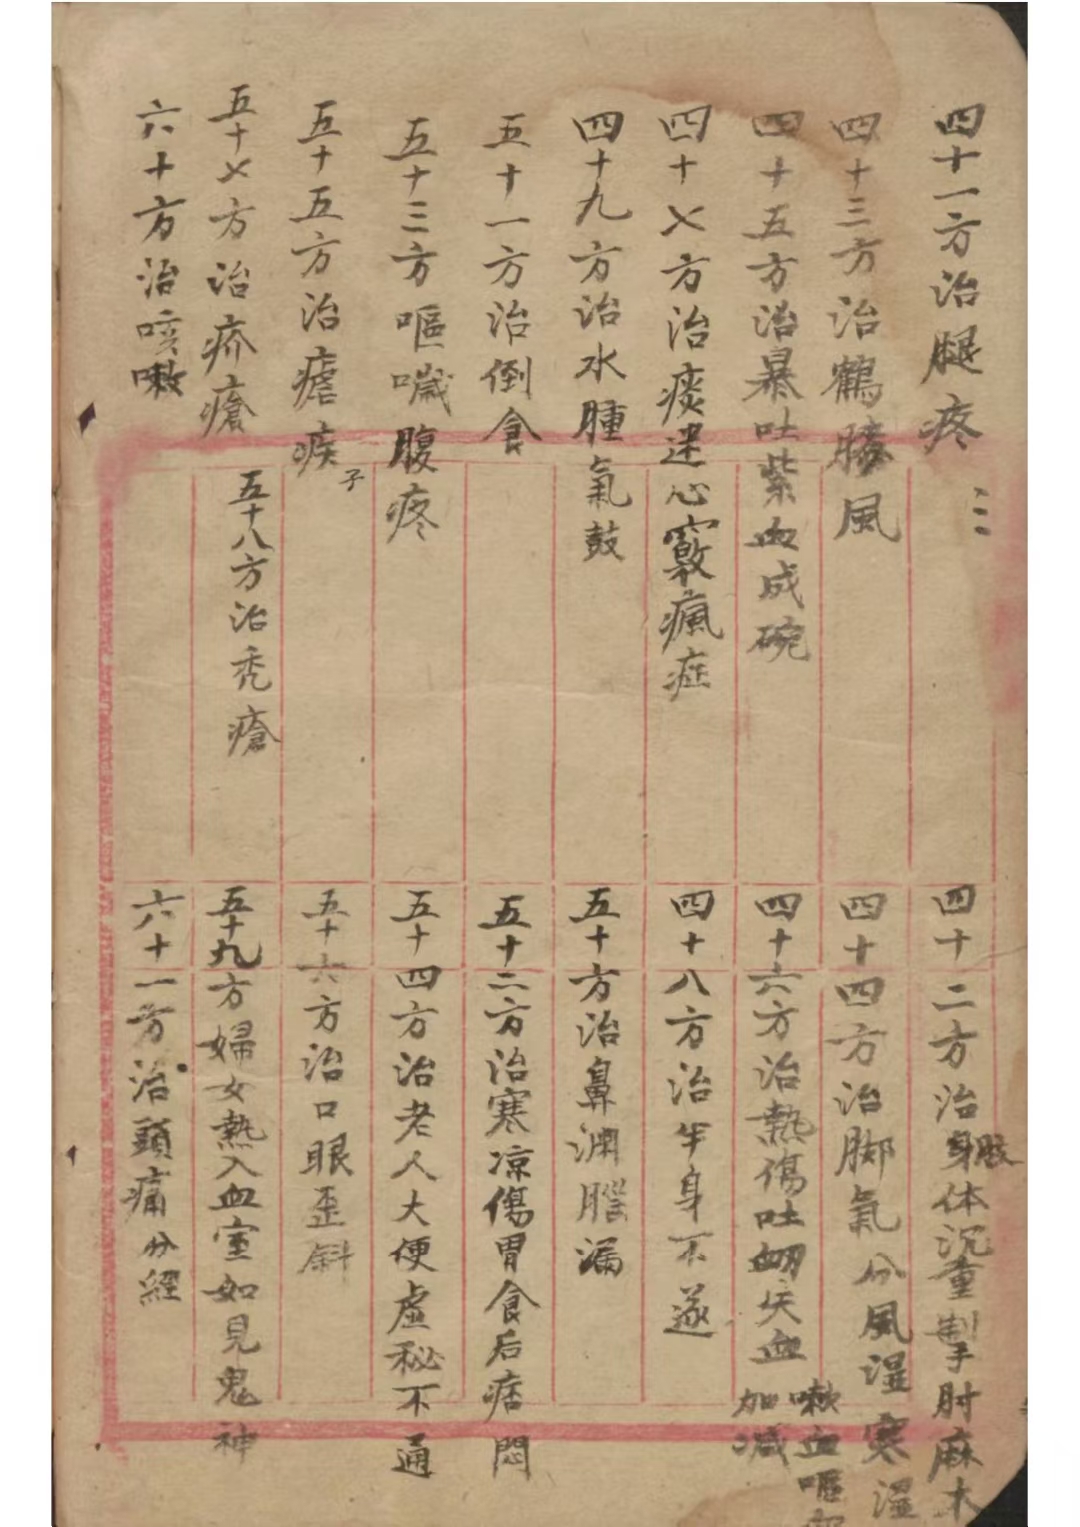 四十一方治腿疼
四十二方治身体沉重掣手肘麻木
四十三方治鶴膝風
四十四方治脚氣分風湿寒湿
四十五方治暴吐紫血成碗
四十六方治熱傷吐衄失血
嗽血嘔
加减
四十七方治痰迷心竅瘋症
四十八方治半身不遂
四十九方治水腫氣鼓
五十方治鼻渊腦漏
五十一方治倒食
五十二方治寒凉傷胃食后痞悶
五十三方嘔喊腹疼
五十四方治老人大便虚秘不通
五十五方治瘧疾
子
五十六方治口眼歪斜
五十七方治疥瘡
五十八方治秃瘡
五十九方婦女熱入血室如見鬼神
六十方治咳嗽
六十一方治頭痛分經